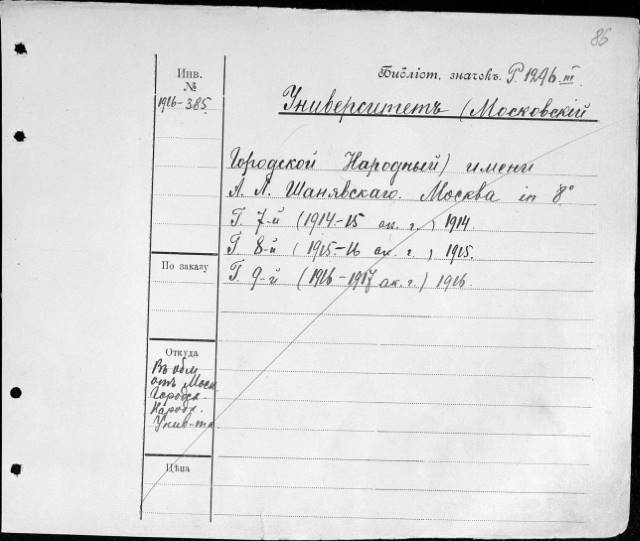 86
Инв.
№
1916-385.
Библіот. значокъ. P.1296.III
Университетъ (Московскій
Городской Народный) имени
А. Л. Шанявскаго. Москва in 8°
Г. 7-й (1914-15 ак. г.) 1914.
Г 8-й (1915-16 ак. г.) 1915.
Г. 9-й (1916-1917 ак. г.) 1916.
По заказу
Откуда
Въ обм
отъ Моск.
Городск.
Народн.
Унив-та.
Цѣна